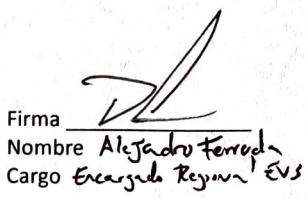 Firma
Nombre Alejandro Ferrada
Cargo Encargado Regional EVS